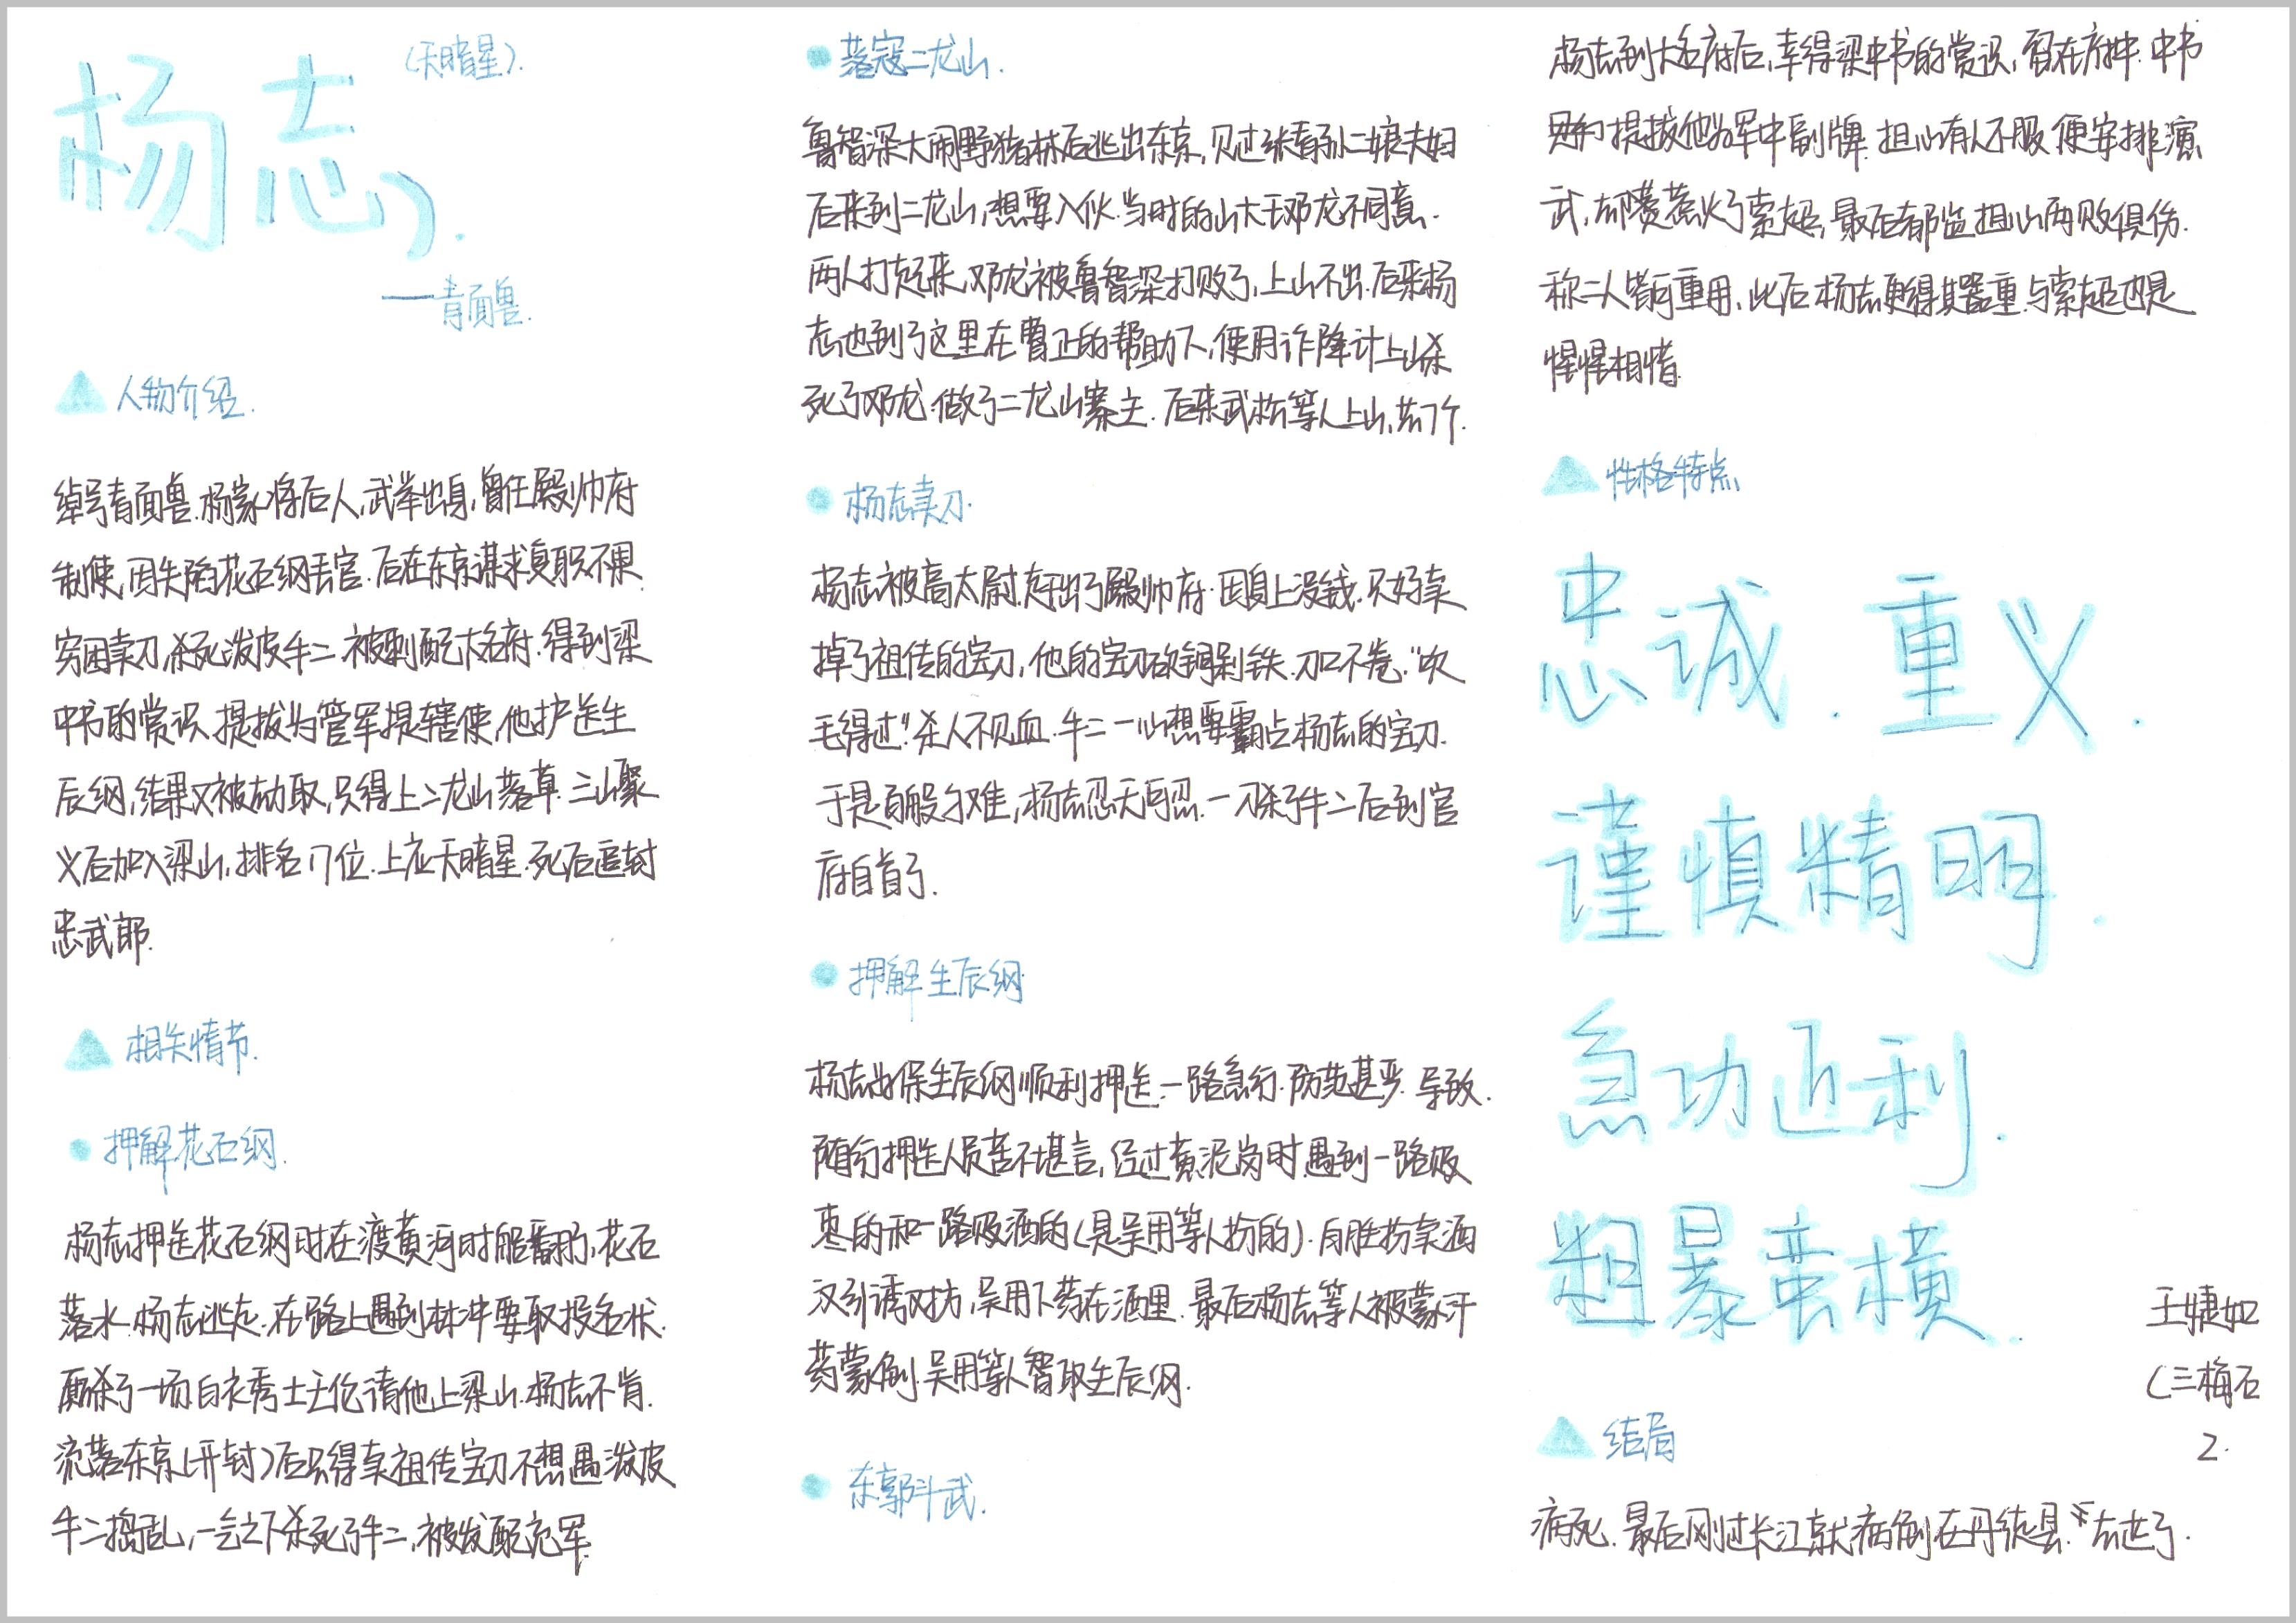 杨志
(天暗星).
——青面兽.
人物介绍.
绰号青面兽.杨家将后人,武举出身,曾任殿帅府
制使,因失陷花石纲丢官.后在东京谋求复职不果.
穷困卖刀,杀死泼皮牛二.被刺配大名府.得到梁
中书的赏识.提拔为管军提辖使,他护送生
辰纲,结果又被劫取,只得上二龙山落草.三山聚
义后加入梁山,排名17位.上应天暗星.死后追封
忠武郎.
相关情节.
押解花石纲.
杨志押送花石纲时在渡黄河时船翻了,花石
落水.杨志逃走.在路上遇到林冲要取投名状.
厮杀了一场.白衣秀士王伦请他上梁山.杨志不肯.
流落东京(开封)后只得卖祖传宝刀不想遇泼皮
牛二捣乱,一气之下杀死了牛二,被发配充军.
落寇二龙山.
鲁智深大闹野猪林后逃出东京,见过张青孙二娘夫妇
后来到二龙山,想要入伙.当时的山大王邓龙不同意.
两人打起来,邓龙被鲁智深打败了,上山不出.后来杨
志也到了这里在曹正的帮助下,使用诈降计上山杀
死了邓龙.做了二龙山寨主.后来武松等人上山,共7个.
杨志卖刀.
杨志被高太尉赶出了殿帅府.因身上没钱.只好卖
掉了祖传的宝刀,他的宝刀砍铜剁铁.刀口不卷."吹
毛得过".杀人不见血.牛二一心想要霸占杨志的宝刀.
于是百般刁难,杨志忍无可忍.一刀杀了牛二后到官
府自首了.
押解生辰纲.
杨志为保生辰纲顺利押送.一路急行.防范甚严.导致.
随行押送人员苦不堪言,经过黄泥岗时.遇到一路贩
枣的和一路贩酒的(是吴用等人扮的).白胜扮卖酒
汉引诱对方,吴用下药在酒里.最后杨志等人被蒙汗
药蒙倒.吴用等人智取生辰纲.
东郭斗武.
杨志到大名府后,幸得梁中书的赏识,留在府中.中书
提拔他为军中副牌.担心有人不服.便安排演
武,却惹火了索超,最后都监担心两败俱伤.
称二人皆可重用,此后杨志更得其器重.与索超也是
惺惺相惜.
性格特点
忠诚.重义.
谨慎精明.
急功近利.
粗暴蛮横.
结局
病死.最后刚过长江就病倒在丹徒县.去世了.
王婕如
(三梅石
2.